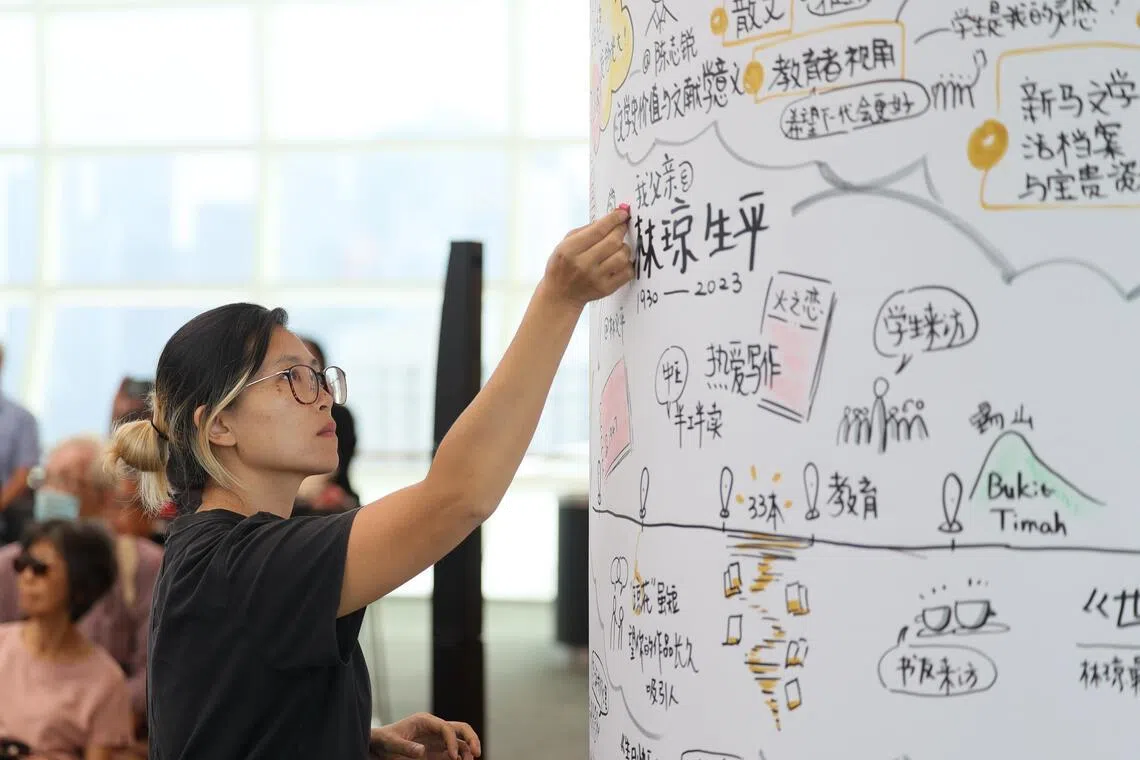 散文
学生是我的灵感！
@陈志锐
教育者视角
文学史价值与文献学意义
希望下一代会更好
新马文学
活档案
与宝贵资
我父亲
林琼生平
1930 — 2023
火之恋
学生来访
热爱写作
中正
半工半卖
33本
教育
Bukit
Timah
虽短
望你的作品长久
吸引人
书友来访
《世
林琼